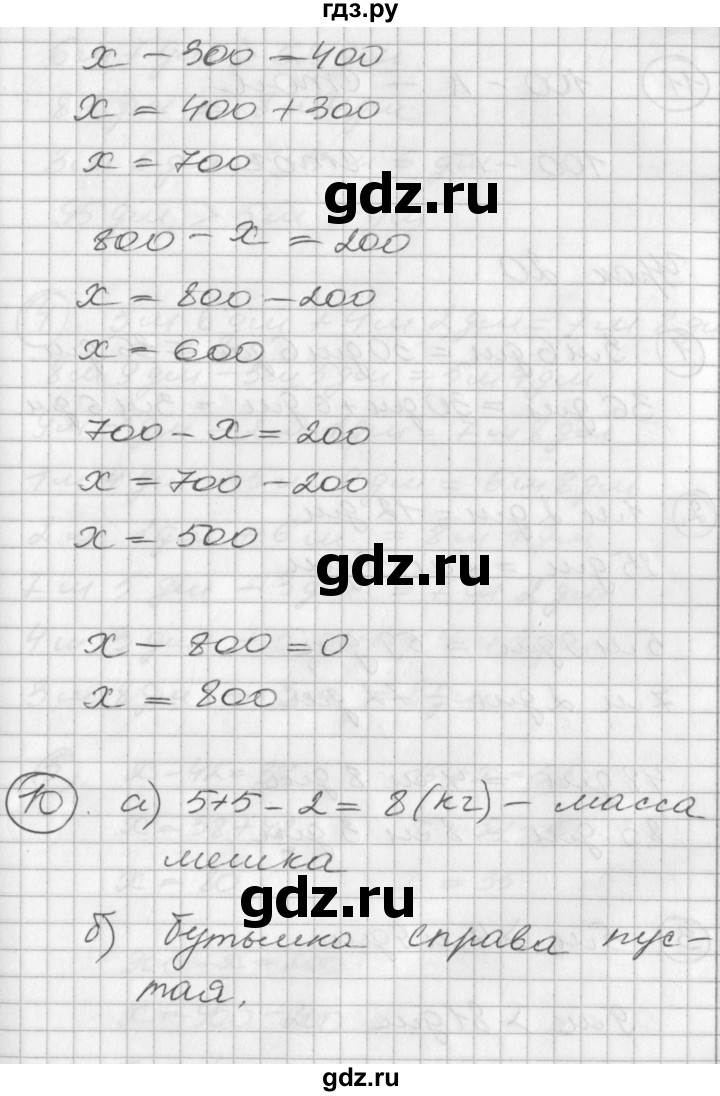 гдз.ру
x - 300 = 400
x = 400 + 300
x = 700
gdz.ru
800 - x = 200
x = 800 - 200
x = 600
700 - x = 200
x = 700 - 200
x = 500
gdz.ru
x - 800 = 0
x = 800
10. а) 5+5-2 = 8 (кг) - масса
мешка
gdz.ru
б) бутылка справа пус-
тая.
gdz.ru